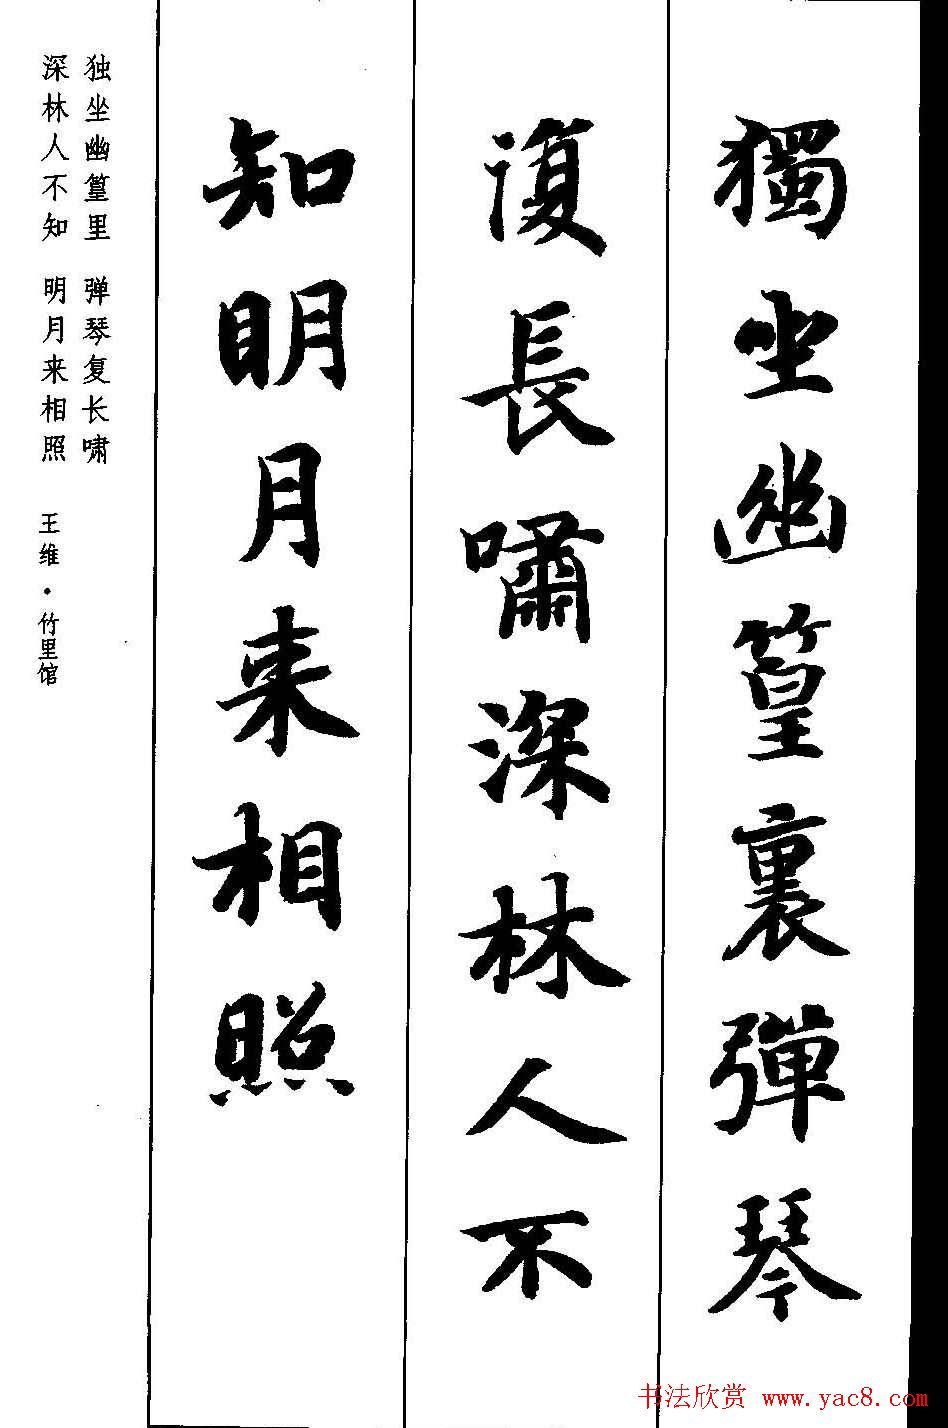 獨坐幽篁裏彈琴
復長嘯深林人不
知明月来相照
独坐幽篁里 弹琴复长啸
深林人不知 明月来相照 王维·竹里馆
书法欣赏 www.yac8.com